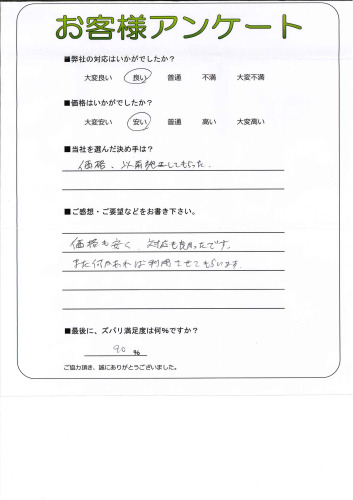 お客様アンケート
■弊社の対応はいかがでしたか？
大変良い 良い 普通 不満 大変不満
■価格はいかがでしたか？
大変安い 安い 普通 高い 大変高い
■当社を選んだ決め手は？
価格、以前施工してもらった.
■ご感想・ご要望などをお書き下さい。
価格も安く、対応も良かったです。
また何かあれば利用させてもらいます.
■最後に、ズバリ満足度は何%ですか？
90 %
ご協力頂き、誠にありがとうございました。